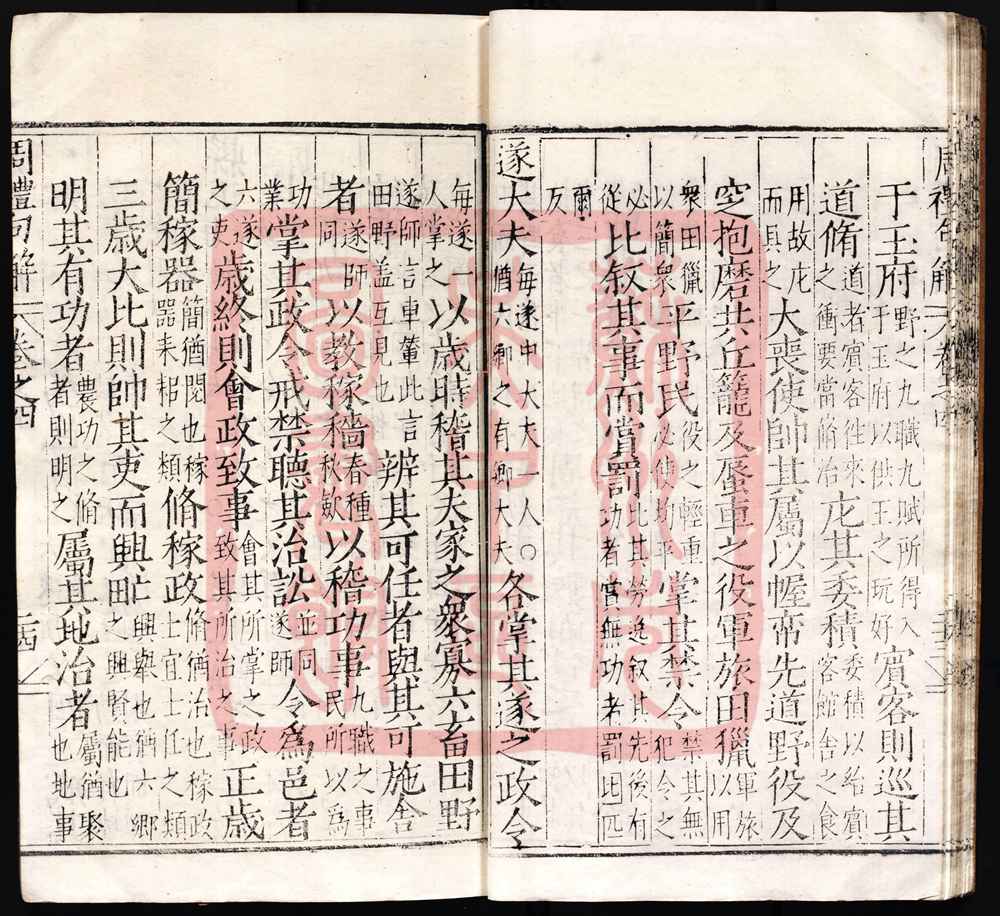 周禮句解 卷之四
于王府野之九職九賦所得入于王府以供王之玩好賓客則巡其
道脩道者賓客徃來之衝要當脩治庀其委積委積以給賓客館舍之食
用故庀而具之大喪使帥其屬以幄帟先道野役及
窆抱磨共丘籠及蜃車之役軍旅田獵軍旅以用
衆田獵以簡衆平野民役之輕重必使均平掌其禁令禁其無犯令之
必從比叙其事而賞罰比其勞逸叙其先後有功者賞無功者罰比匹
爾反
遂大夫每遂中大夫一人○猶六鄉之有鄉大夫各掌其遂之政令
每遂一人掌之以歲時稽其夫家之衆寡六畜田野
遂師言車輦此言田野蓋互見也辨其可任者與其可施舍
者遂師同以教稼穡春種秋歛以稽功事九職之事民所以爲
功業掌其政令戒禁聽其治訟並同遂師令爲邑者
六遂之吏歲終則會政致事會其所掌之政致其所治之事正歲
簡稼器簡猶閱也稼器耒耜之類脩稼政脩猶治也稼政士宜士任之類
三歲大比則帥其吏而興甿興舉也猶六鄉之興賢能也
明其有功者農功之脩者則明之屬其地治者屬猶聚也地事
周禮句解 卷之四 二四